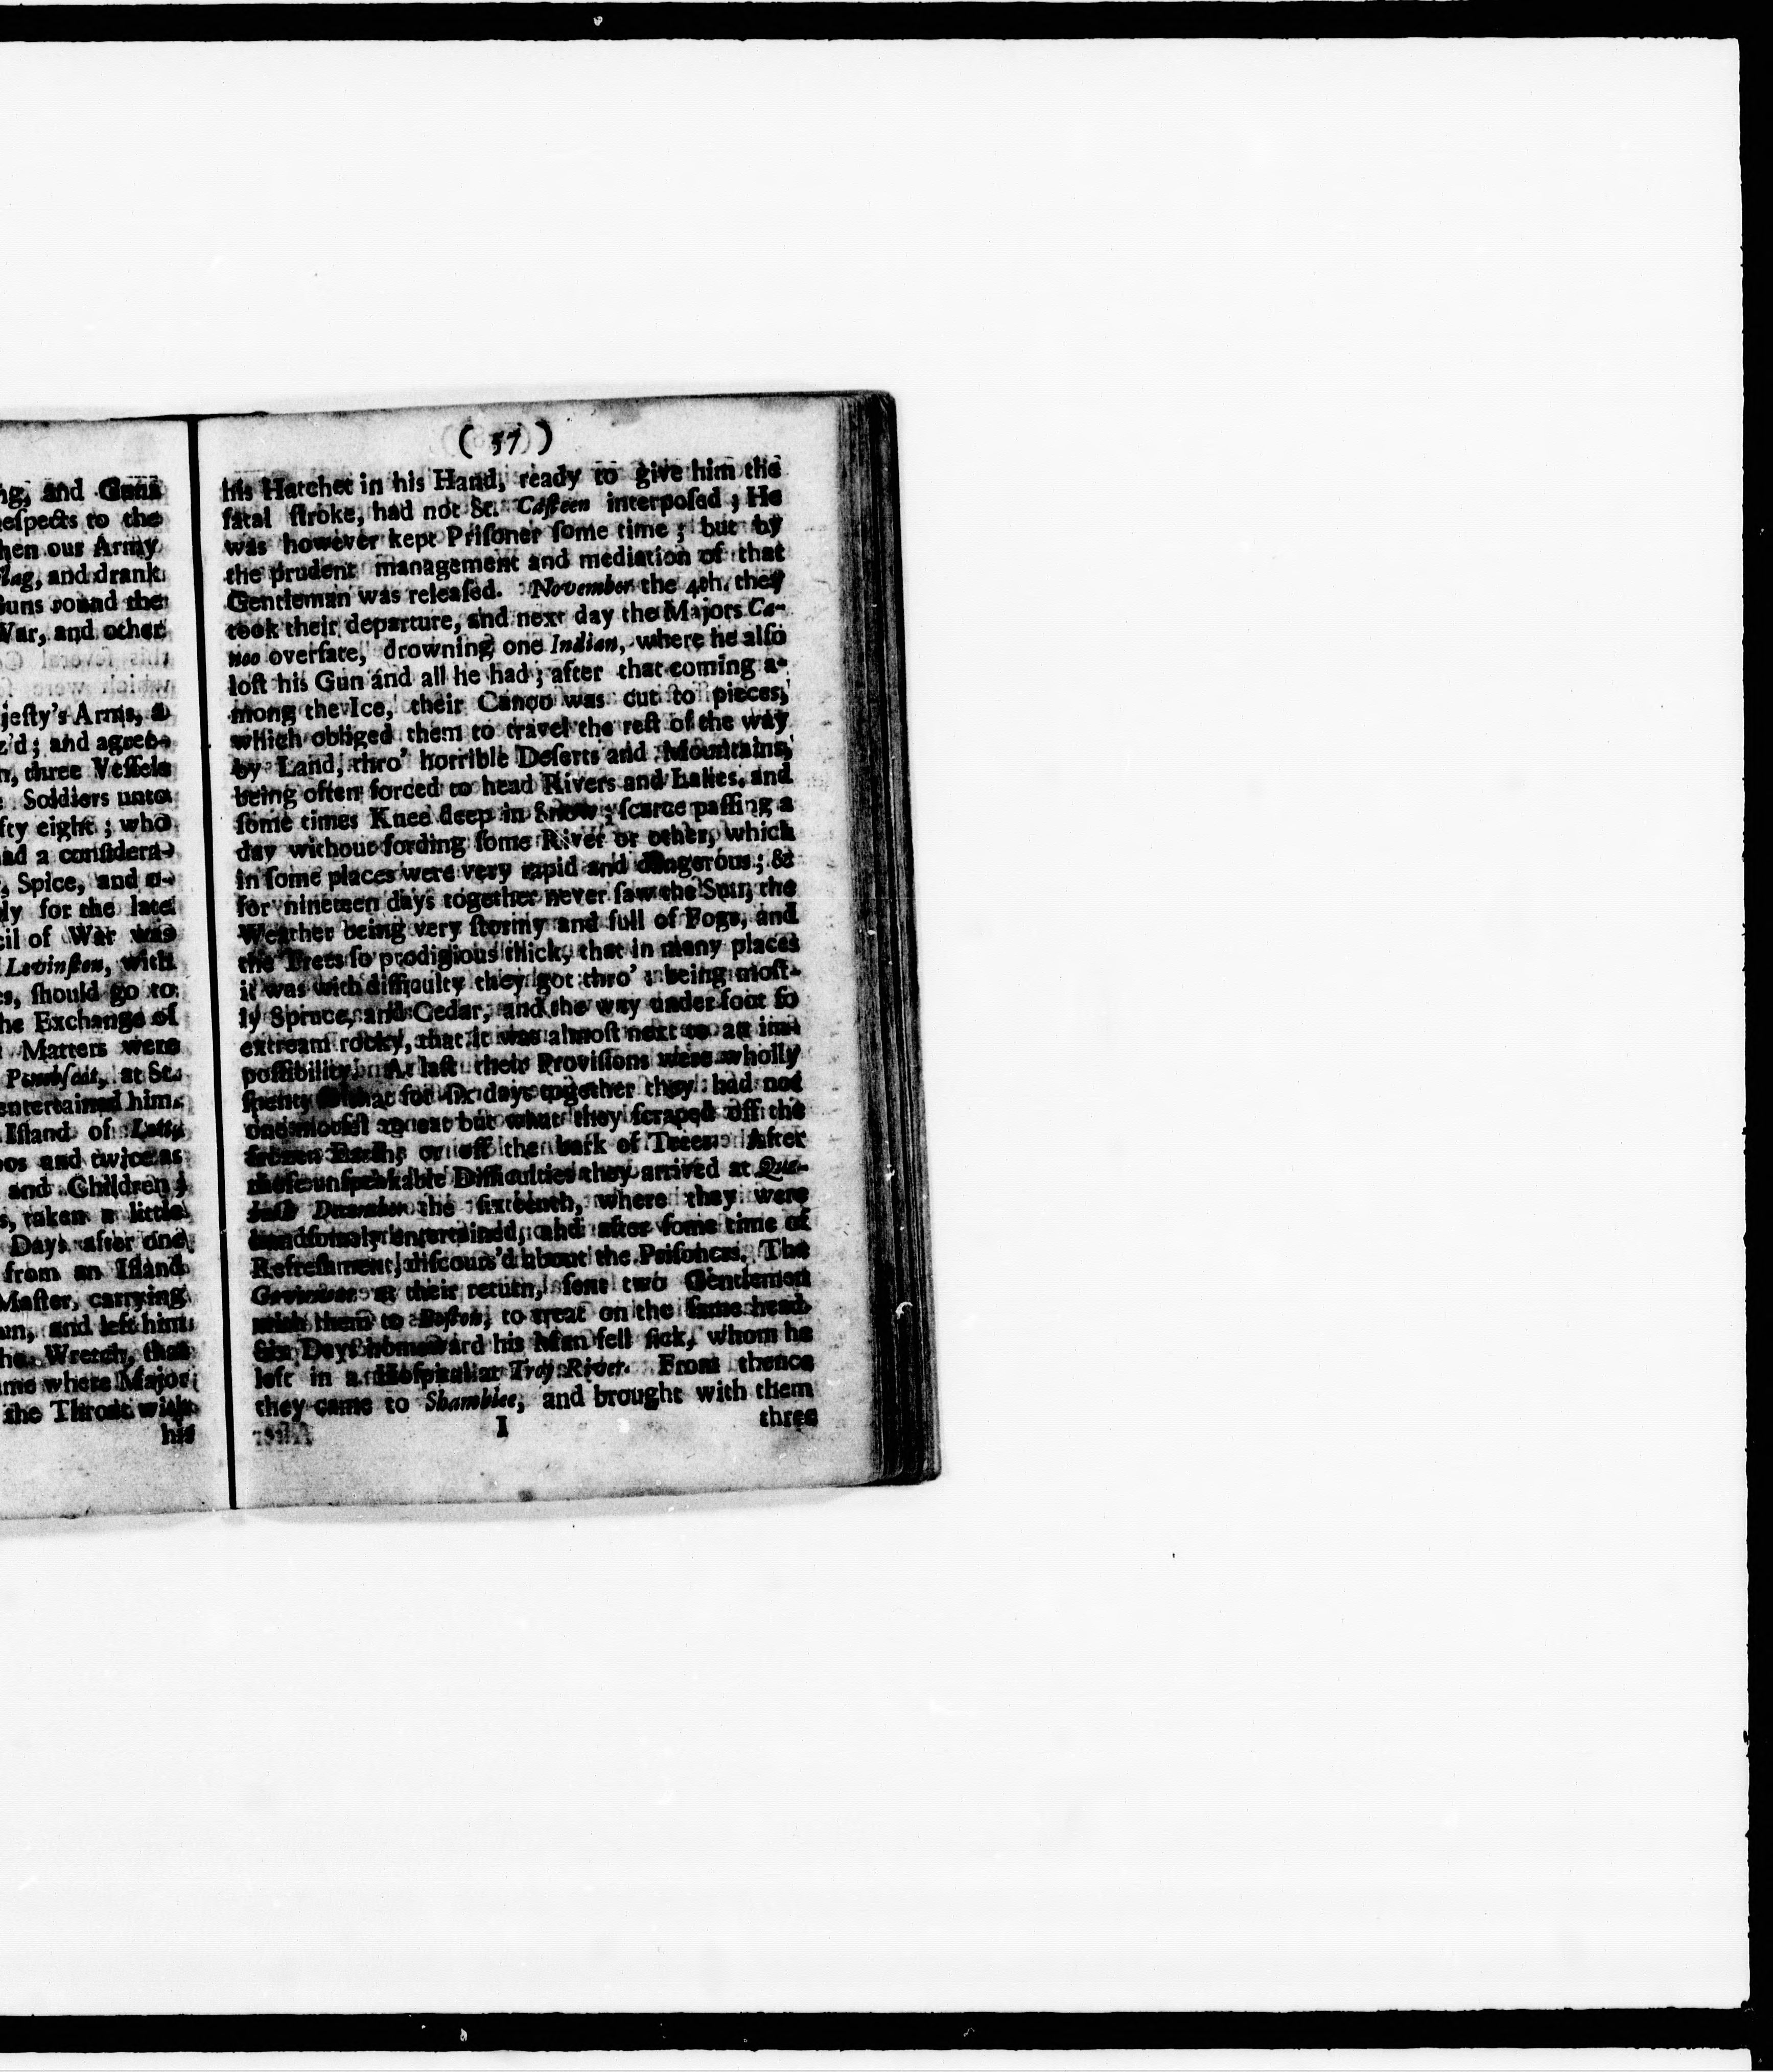 ng, and Guns
espects to the
hen our Army
lag, and drank
Guns round the
War, and other
jesty's Arms, a
z'd; and agree-
n, three Vessels
Soldiers unto
fty eight; who
ad a considera-
, Spice, and o-
ly for the late
cil of War was
Levinston, with
es, should go to
he Exchange of
Matters were
at St.
entertained him
Island of
os and twice as
and Children;
s, taken a little
Days after one
from an Island
Master, carrying
an, and left him
he Wretch, that
me where Major
the Throat with
his
( 57 )
his Hatchet in his Hand, ready to give him the
fatal ſtroke, had not St. Caſteen interpoſed; He
was however kept Priſoner ſome time; but by
the prudent management and mediation of that
Gentleman was releaſed. November the 4th. they
took their departure, and next day the Majors Ca-
noo overſate, drowning one Indian, where he alſo
loſt his Gun and all he had; after that coming a-
mong the Ice, their Canoo was cut to pieces,
which obliged them to travel the reſt of the way
by Land, thro' horrible Deſerts and Mountains,
being often forced to head Rivers and Lakes, and
ſome times Knee deep in Snow; ſcarce paſſing a
day without fording ſome River or other, which
in ſome places were very rapid and dangerous; &
for nineteen days together never ſaw the Sun, the
Weather being very ſtormy and full of Fogs, and
the Trees ſo prodigious thick, that in many places
it was with difficulty they got thro'; being moſt-
ly Spruce, and Cedar, and the way under foot ſo
extream rocky, that it was almoſt next to an im-
poſſibility. At laſt their Proviſions were wholly
ſpent, ſo that for ſix days together they had not
one morſel to eat but what they ſcraped off the
frozen Earth, or off the bark of Trees. After
theſe unſpeakable Difficulties they arrived at Que-
beck December the ſixteenth, where they were
handſomely entertained, and after ſome time of
Refreſhment, diſcours'd about the Priſoners. The
Governour at their return, ſent two Gentlemen
with them to Boſton, to treat on the ſame head.
Six Days homeward his Man fell ſick, whom he
left in a Hoſpital at Troy River. From thence
they came to Shamblee, and brought with them
I three